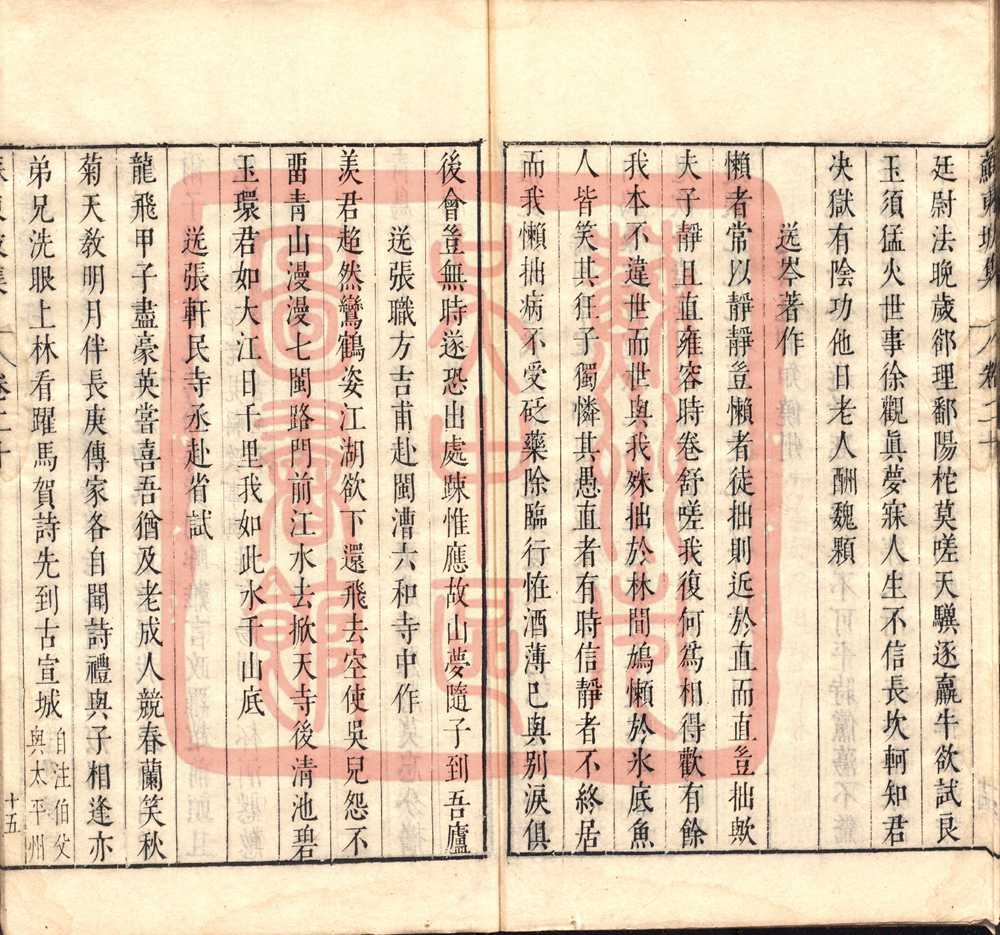 蘇東坡集 卷二十
廷尉法晚歲郤理鄱陽柁莫嗟天驥逐羸牛欲試良
玉須猛火世事徐觀眞夢寐人生不信長坎軻知君
决獄有陰功他日老人酬魏顆
送岑著作
懶者常似靜靜豈懶者徒拙則近於直而直豈拙歟
夫子靜且直雍容時卷舒嗟我復何爲相得歡有餘
我本不違世而世與我殊拙於林間鳩懶於氷底魚
人皆笑其狂子獨憐其愚直者有時信靜者不終居
而我懶拙病不受砭藥除臨行恠酒薄已與別淚俱
後會豈無時遂恐出處踈惟應故山夢隨子到吾廬
送張職方吉甫赴閩漕六和寺中作
羨君超然鸞鶴姿江湖欲下還飛去空使吳兒怨不
畱青山漫漫七閩路門前江水去掀天寺後清池碧
玉環君如大江日千里我如此水千山底
送張軒民寺丞赴省試
龍飛甲子盡豪英嘗喜吾猶及老成人競春蘭笑秋
菊天敎明月伴長庚傳家各自聞詩禮與子相逢亦
弟兄洗眼上林看躍馬賀詩先到古宣城 自注伯父與太平州
東坡集 卷二十 十五